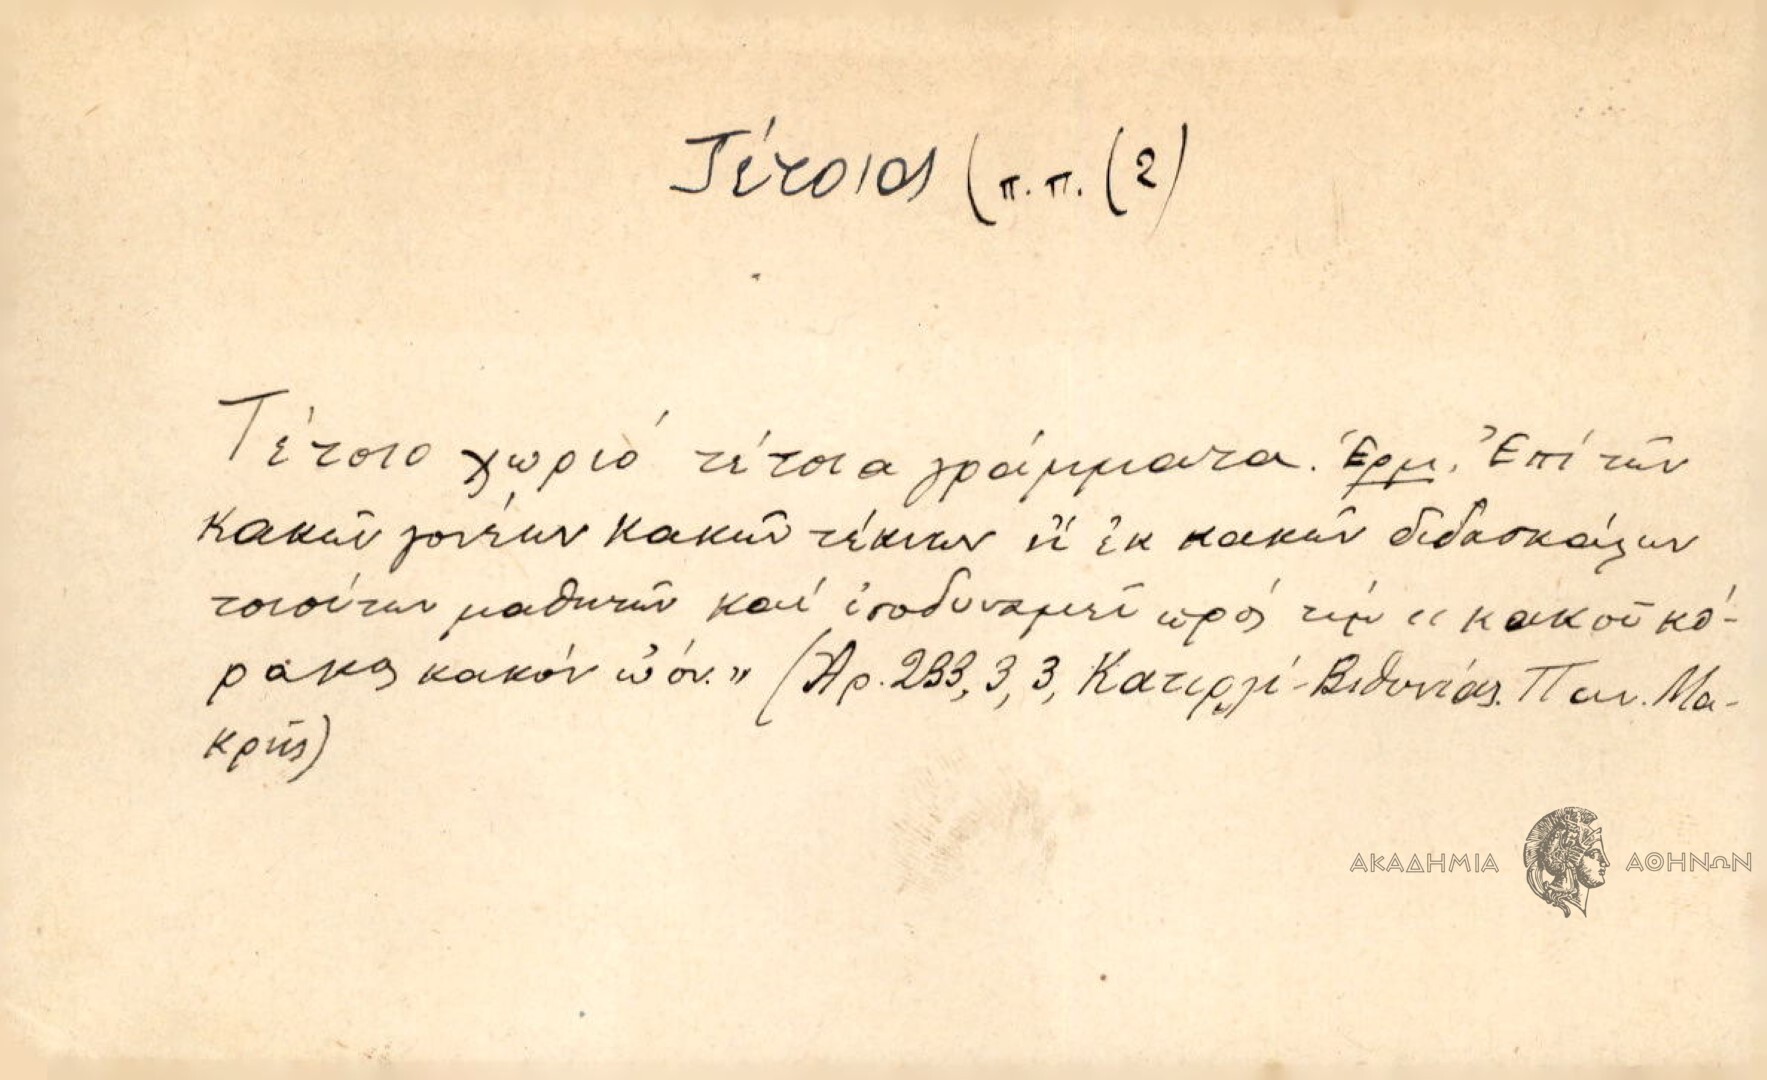 Τέτοιος (π.π. (2)
Τέτοιο χωριό τέτοια γράμματα. Ἑρμ. Ἐπί τῶν
κακῶν γονέων κακῶν τέκνων ἤ ἐκ κακῶν διδασκάλων
τοιούτων μαθητῶν καί ἰσοδυναμεῖ πρός τήν «κακοῦ κό-
ρακος κακόν ὠόν.» (Ἀρ. 233, 3, 3, Κατιρλί-Βιθυνίας. Παν. Μα-
κρῆς)
ΑΚΑΔΗΜΙΑ ΑΘΗΝΩΝ